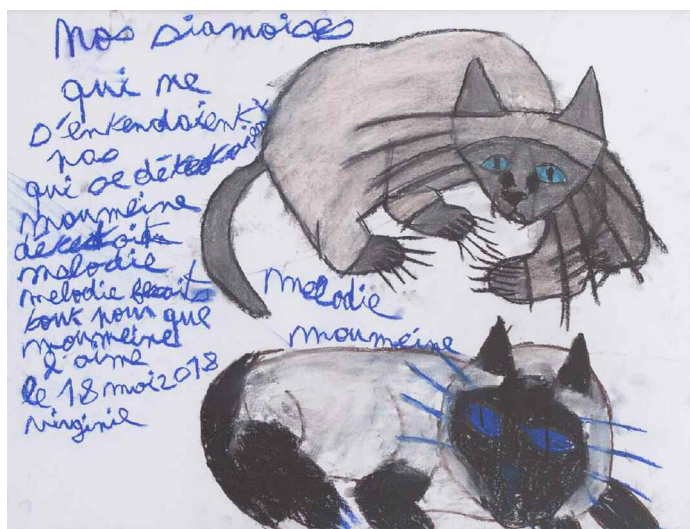 Nos siamoises
qui ne
s'entendaient
pas
qui se détestaient
moumeine
détestait
melodie
melodie fesait
tout pour que
moumeine
l'aime
le 18 mai 2018
virginie
melodie
moumeine